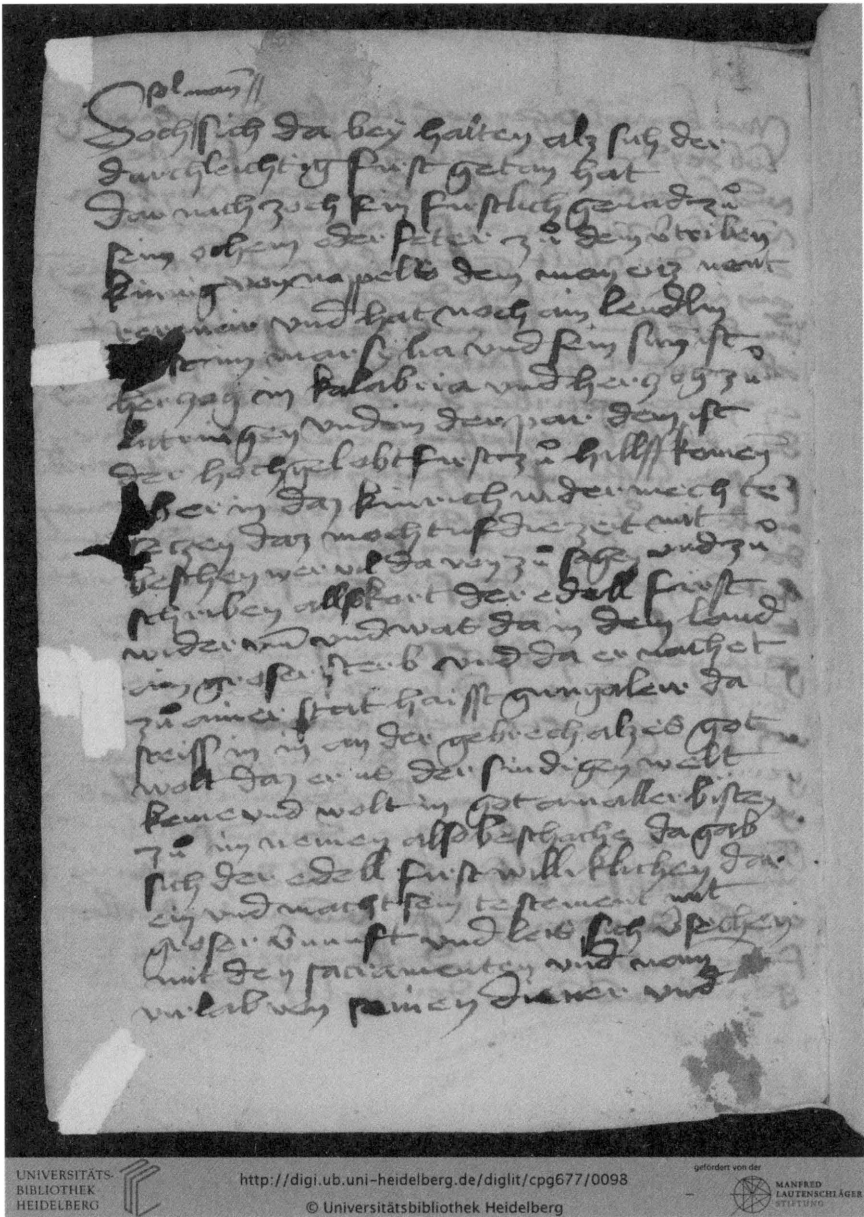 sol man
Soch sich da bey halten alz sich der
durchleichtig first getan hat
dar nach zoch sein firstlich genad zů
seim ochem oder feter zů dem v̄triben
kinnig von nappells dem man etz nent
und hat noch ain lendlin
marsylia und sein sun ist
herzog in kalabria und herzog zů
lutringen und in der par dem ist
der hochgelobt first zů hillff komen
ber in daz kinrich wider mecht
setzen daz mocht uf die zeit nit
beschen wer vil da von zů sagen und zů
schriben allso kort der edell first
wider um und was da in dem land
ain groser sterb und da er nachet
zů ainer stat haisst da
stiess in in an der gebrech alz es got
wolt daz er us der sindigen welt
keme und wolt in got am aller bisten
zů im nemen allso beschache da gab
sich der edell first williklichen dar
ein und macht sein testement mit
groser v̄nunft und leis sich v̄sechen
mit den sacramenten und nam
urlab von seinen diener und
UNIVERSITÄTS-
BIBLIOTHEK
HEIDELBERG
http://digi.ub.uni-heidelberg.de/diglit/cpg677/0098
© Universitätsbibliothek Heidelberg
gefördert von der
MANFRED
LAUTENSCHLÄGER
STIFTUNG